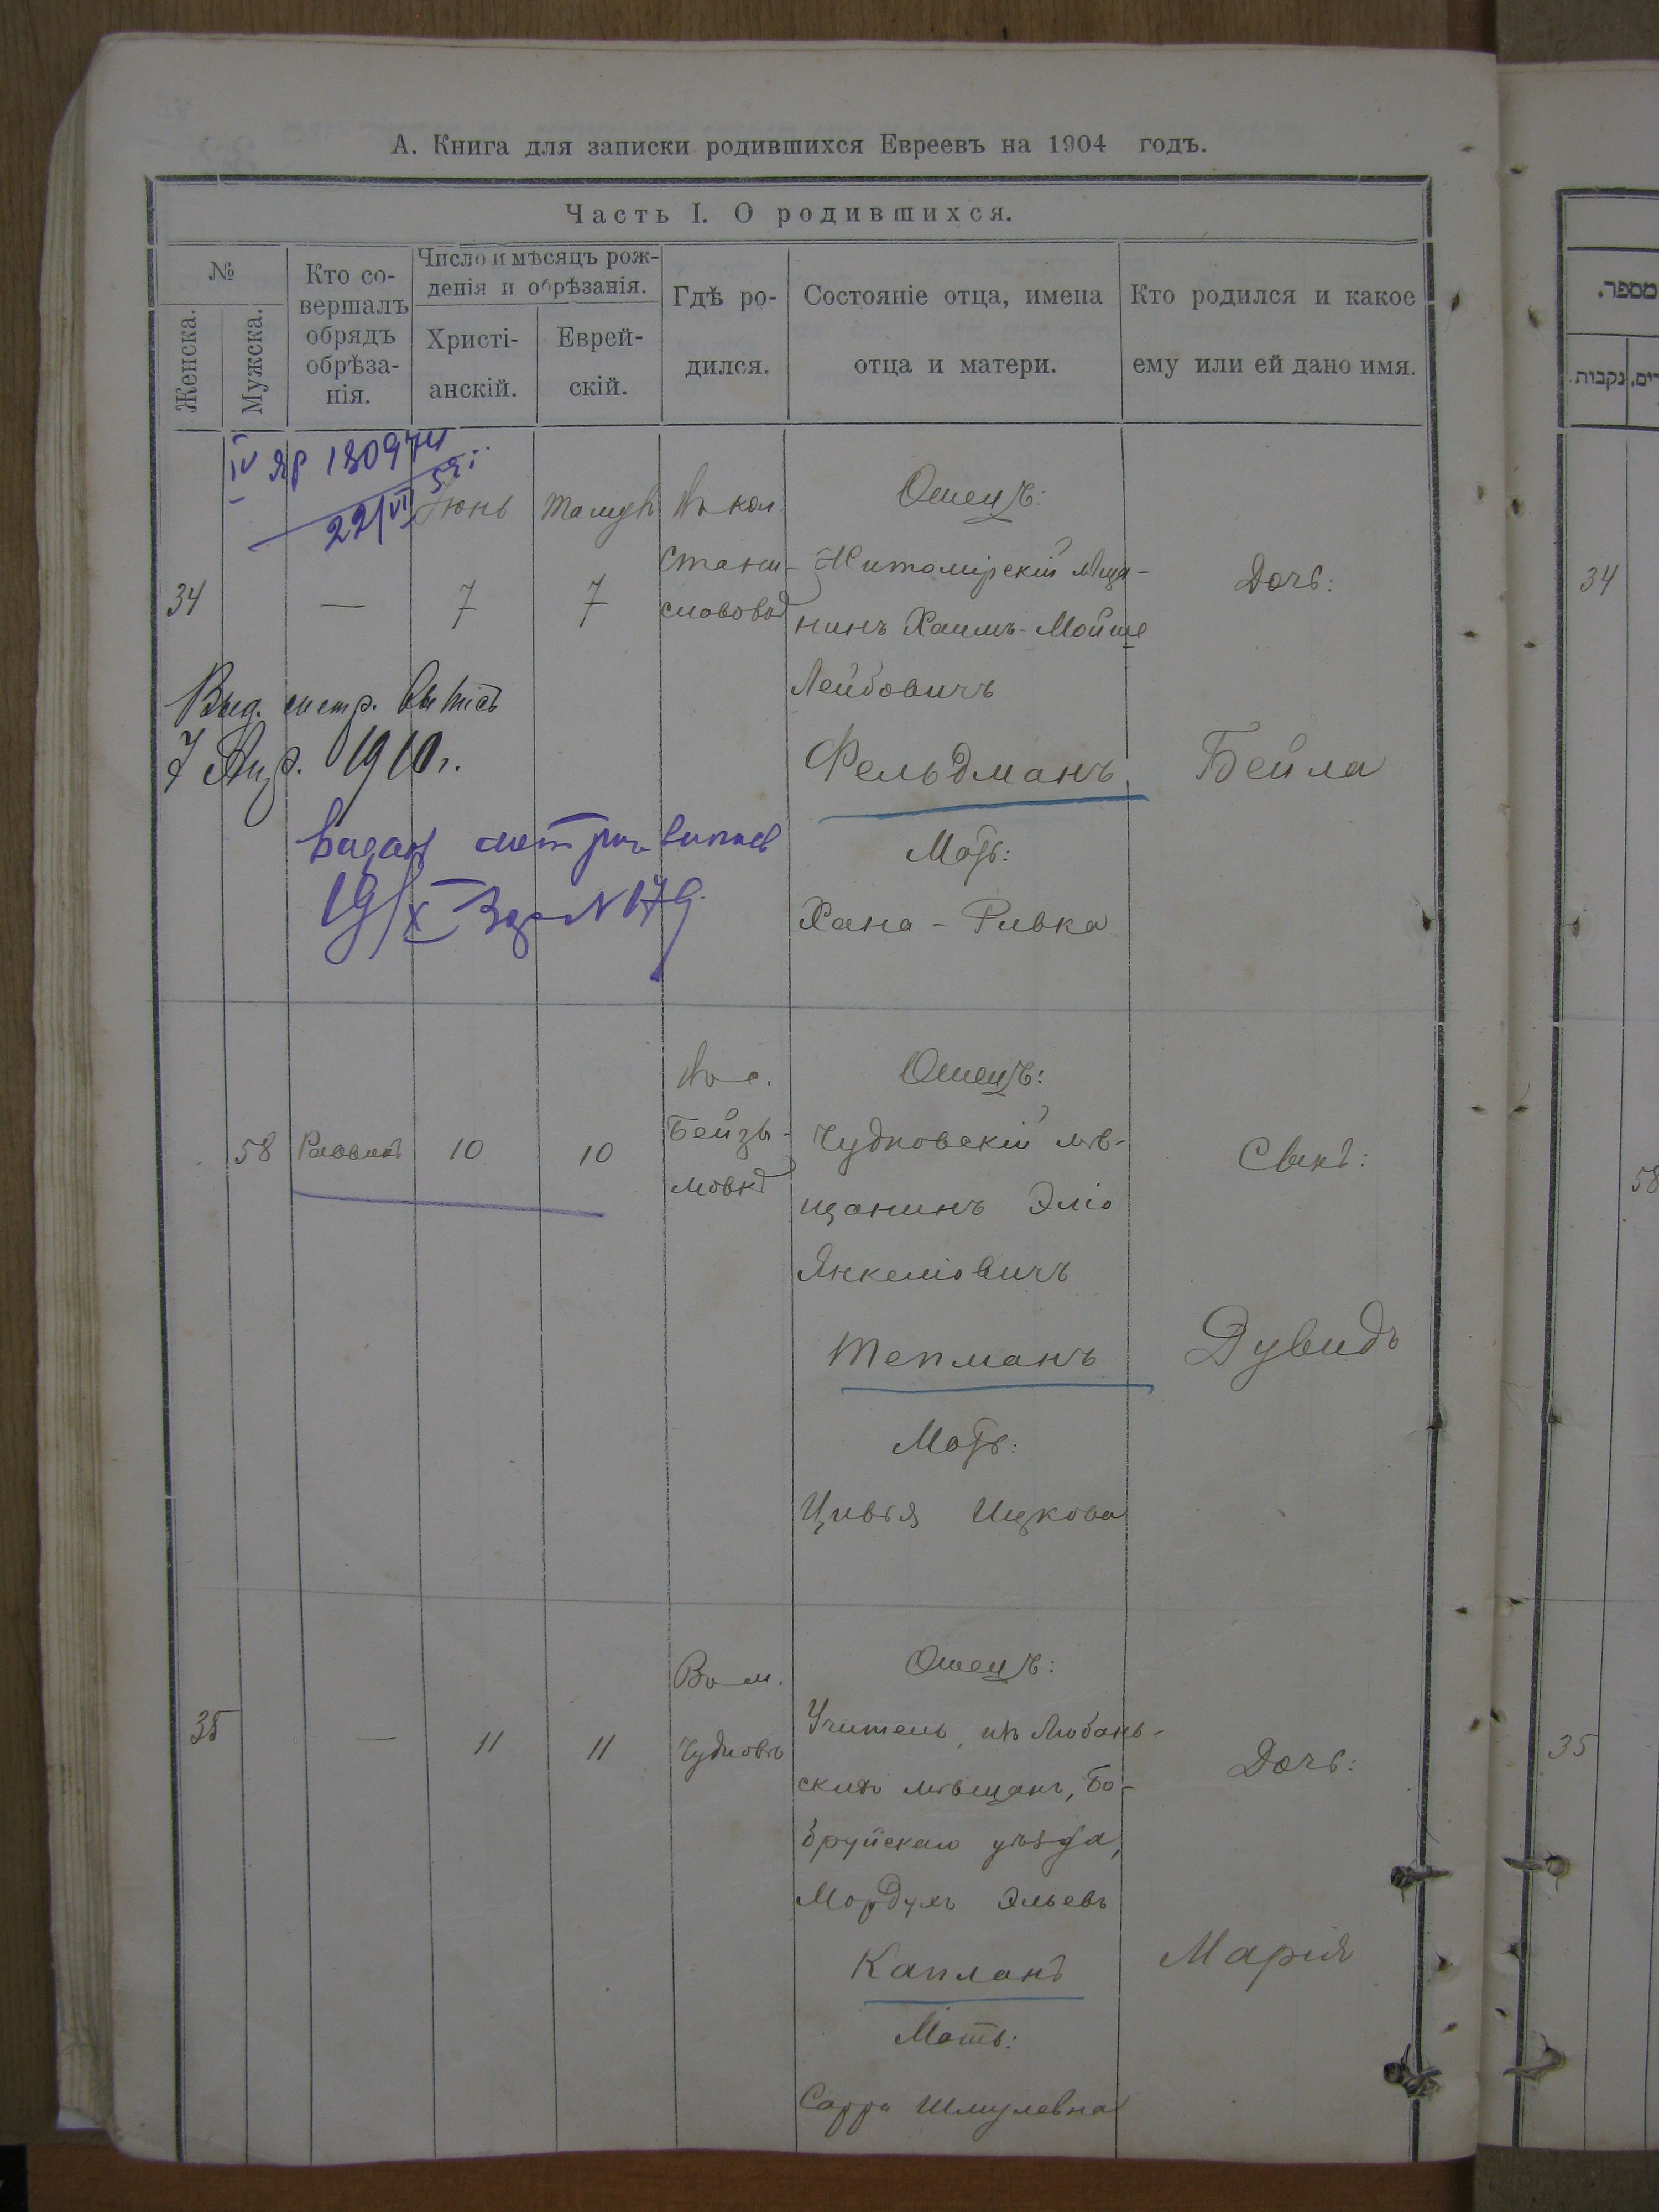 А. Книга для записки родившихся Евреевъ на 1904 годъ.
Часть I. О родившихся.
№
Женска.
Мужска.
Кто со-
вершалъ
обрядъ
обрѣза-
нія.
Число и мѣсяцъ рож-
денія и обрѣзанія.
Христі-
анскій.
Еврей-
скій.
Гдѣ ро-
дился.
Состояніе отца, имена
отца и матери.
Кто родился и какое
ему или ей дано имя.
IV ЯР 180974
22/VI 59 г.
34
—
Іюнь
7
7
Въ кол.
Стани-
Отецъ:
Житомірскій мѣща-
нинъ Хаимъ-Мойше
Лейбовичъ
Фельдманъ
Мать:
Хана-Ривка
Дочь:
Бейла
Выд. метр. выпись
7 1910 г.
19/X № 179
58
Раввинъ
10
10
Въ с.
Бейзы-
мовкѣ
Отецъ:
Чудновскій мѣ-
щанинъ Эліо
Янкеліовичъ
Тепманъ
Мать:
Цивья Ицкова
Сынъ:
Дувидъ
35
—
11
11
Въ м.
Чудновъ
Отецъ:
Учитель, изъ Любань-
скихъ мѣщанъ, Бо-
бруйскаго уѣзда,
Мордухъ Эльевъ
Капланъ
Мать:
Сарра Шмулевна
Дочь:
Марія
מספר.
נקבות
34
58
35